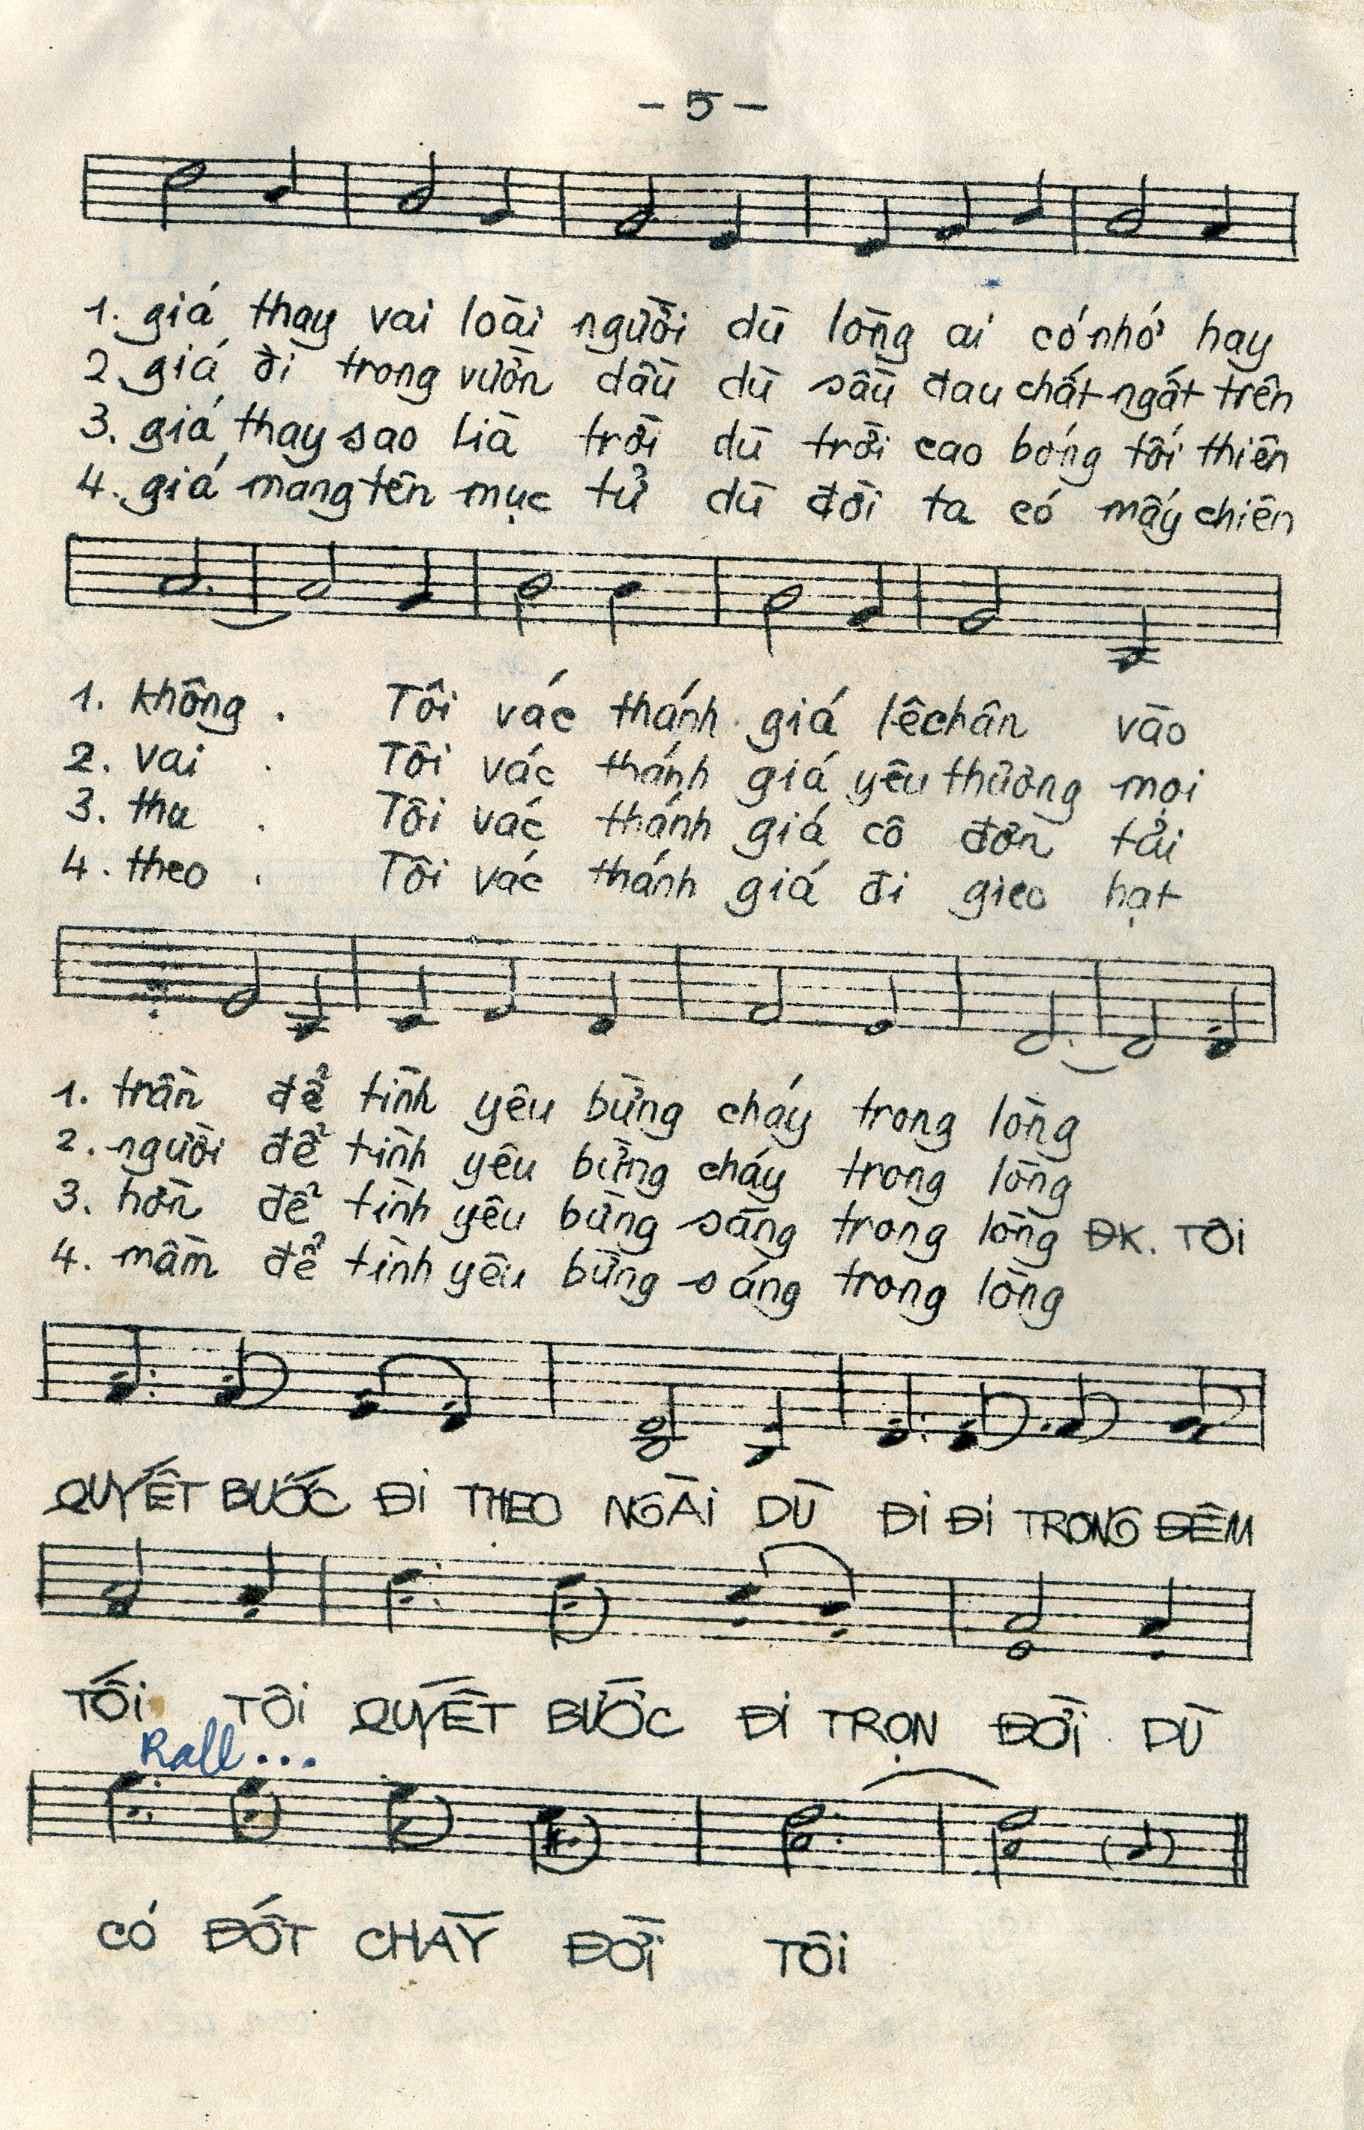 - 5 -
1. giá thay vai loài người dù lòng ai có nhớ hay
2. giá đi trong vườn dầu dù sầu đau chất ngất trên
3. giá thay sao lìa trời dù trời cao bóng tối thiên
4. giá mang tên mục tử dù đời ta có mấy chiên
1. không . Tôi vác thánh giá lê chân vào
2. vai . Tôi vác thánh giá yêu thương mọi
3. thu . Tôi vác thánh giá cô đơn tủi
4. theo . Tôi vác thánh giá đi gieo hạt
1. trần để tình yêu bừng cháy trong lòng
2. người để tình yêu bừng cháy trong lòng
3. hờn để tình yêu bừng sáng trong lòng ĐK. TÔI
4. mầm để tình yêu bừng sáng trong lòng
QUYẾT BƯỚC ĐI THEO NGÀI DÙ ĐI ĐI TRONG ĐÊM
TỐI TÔI QUYẾT BƯỚC ĐI TRỌN ĐỜI DÙ
Rall...
CÓ ĐỐT CHÁY ĐỜI TÔI